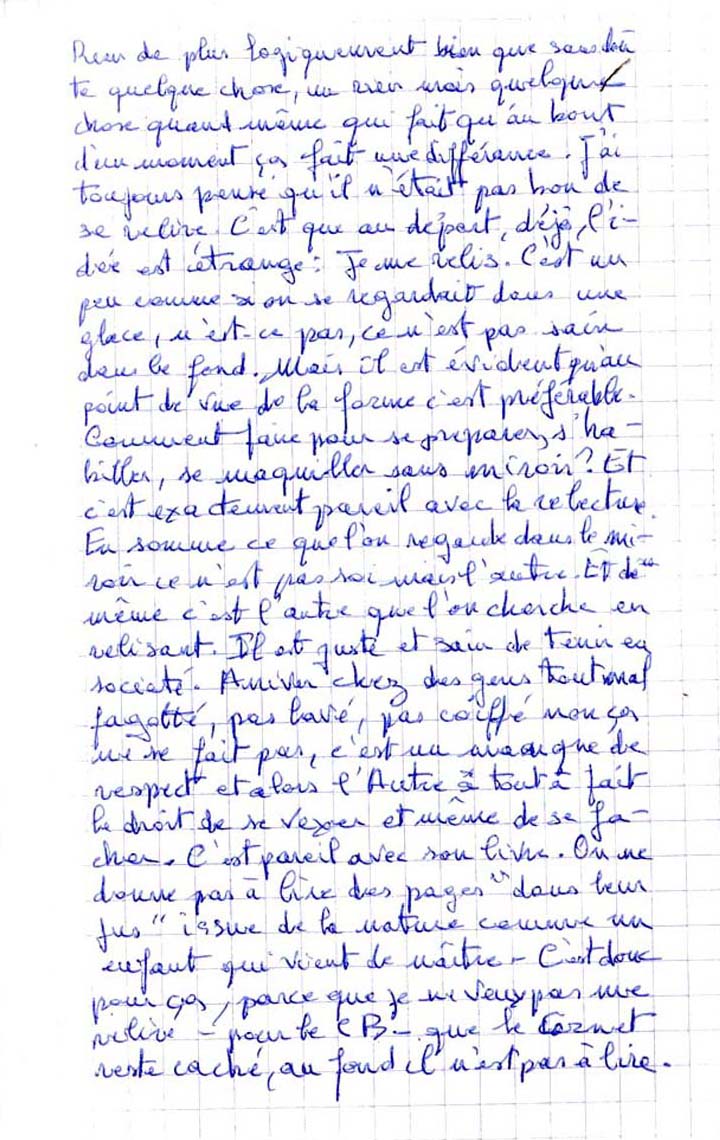 Rien de plus logiquement bien que sans dou
te quelque chose, un rien mais quelque
chose quand même qui fait qu'au bout
d'un moment ça fait une différance. J'ai
toujours pensé qu'il n'était pas bon de
se relire. C'est que au départ, déjà, l'i-
dée est étrange : Je me relis. C'est un
peu comme si on se regardait dans une
glace, n'est-ce pas, ce n'est pas sain
dans le fond. Mais il est évident qu'au
point de vue de la forme c'est préférable.
Comment faire pour se préparer, s'ha-
biller, se maquiller sans miroir ? Et
c'est exactement pareil avec la relecture.
En somme ce que l'on regarde dans le mi-
roir ce n'est pas soi mais l'autre. Et de
même c'est l'autre que l'on cherche en
relisant. Il est juste et sain de tenir en
société. Arriver chez des gens tout mal
fagotté, pas lavé, pas coiffé non ça
ne se fait pas, c'est un manque de
respect et alors l'Autre a tout à fait
le droit de se vexer et même de se fa-
cher. C'est pareil avec son livre. On ne
donne pas à lire des pages "dans leur
jus" issue de la nature comme un
enfant qui vient de naître - C'est donc
pour ça, parce que je ne veux pas me
relire - pour le CB - que le Carnet
reste caché, au fond il n'est pas à lire.